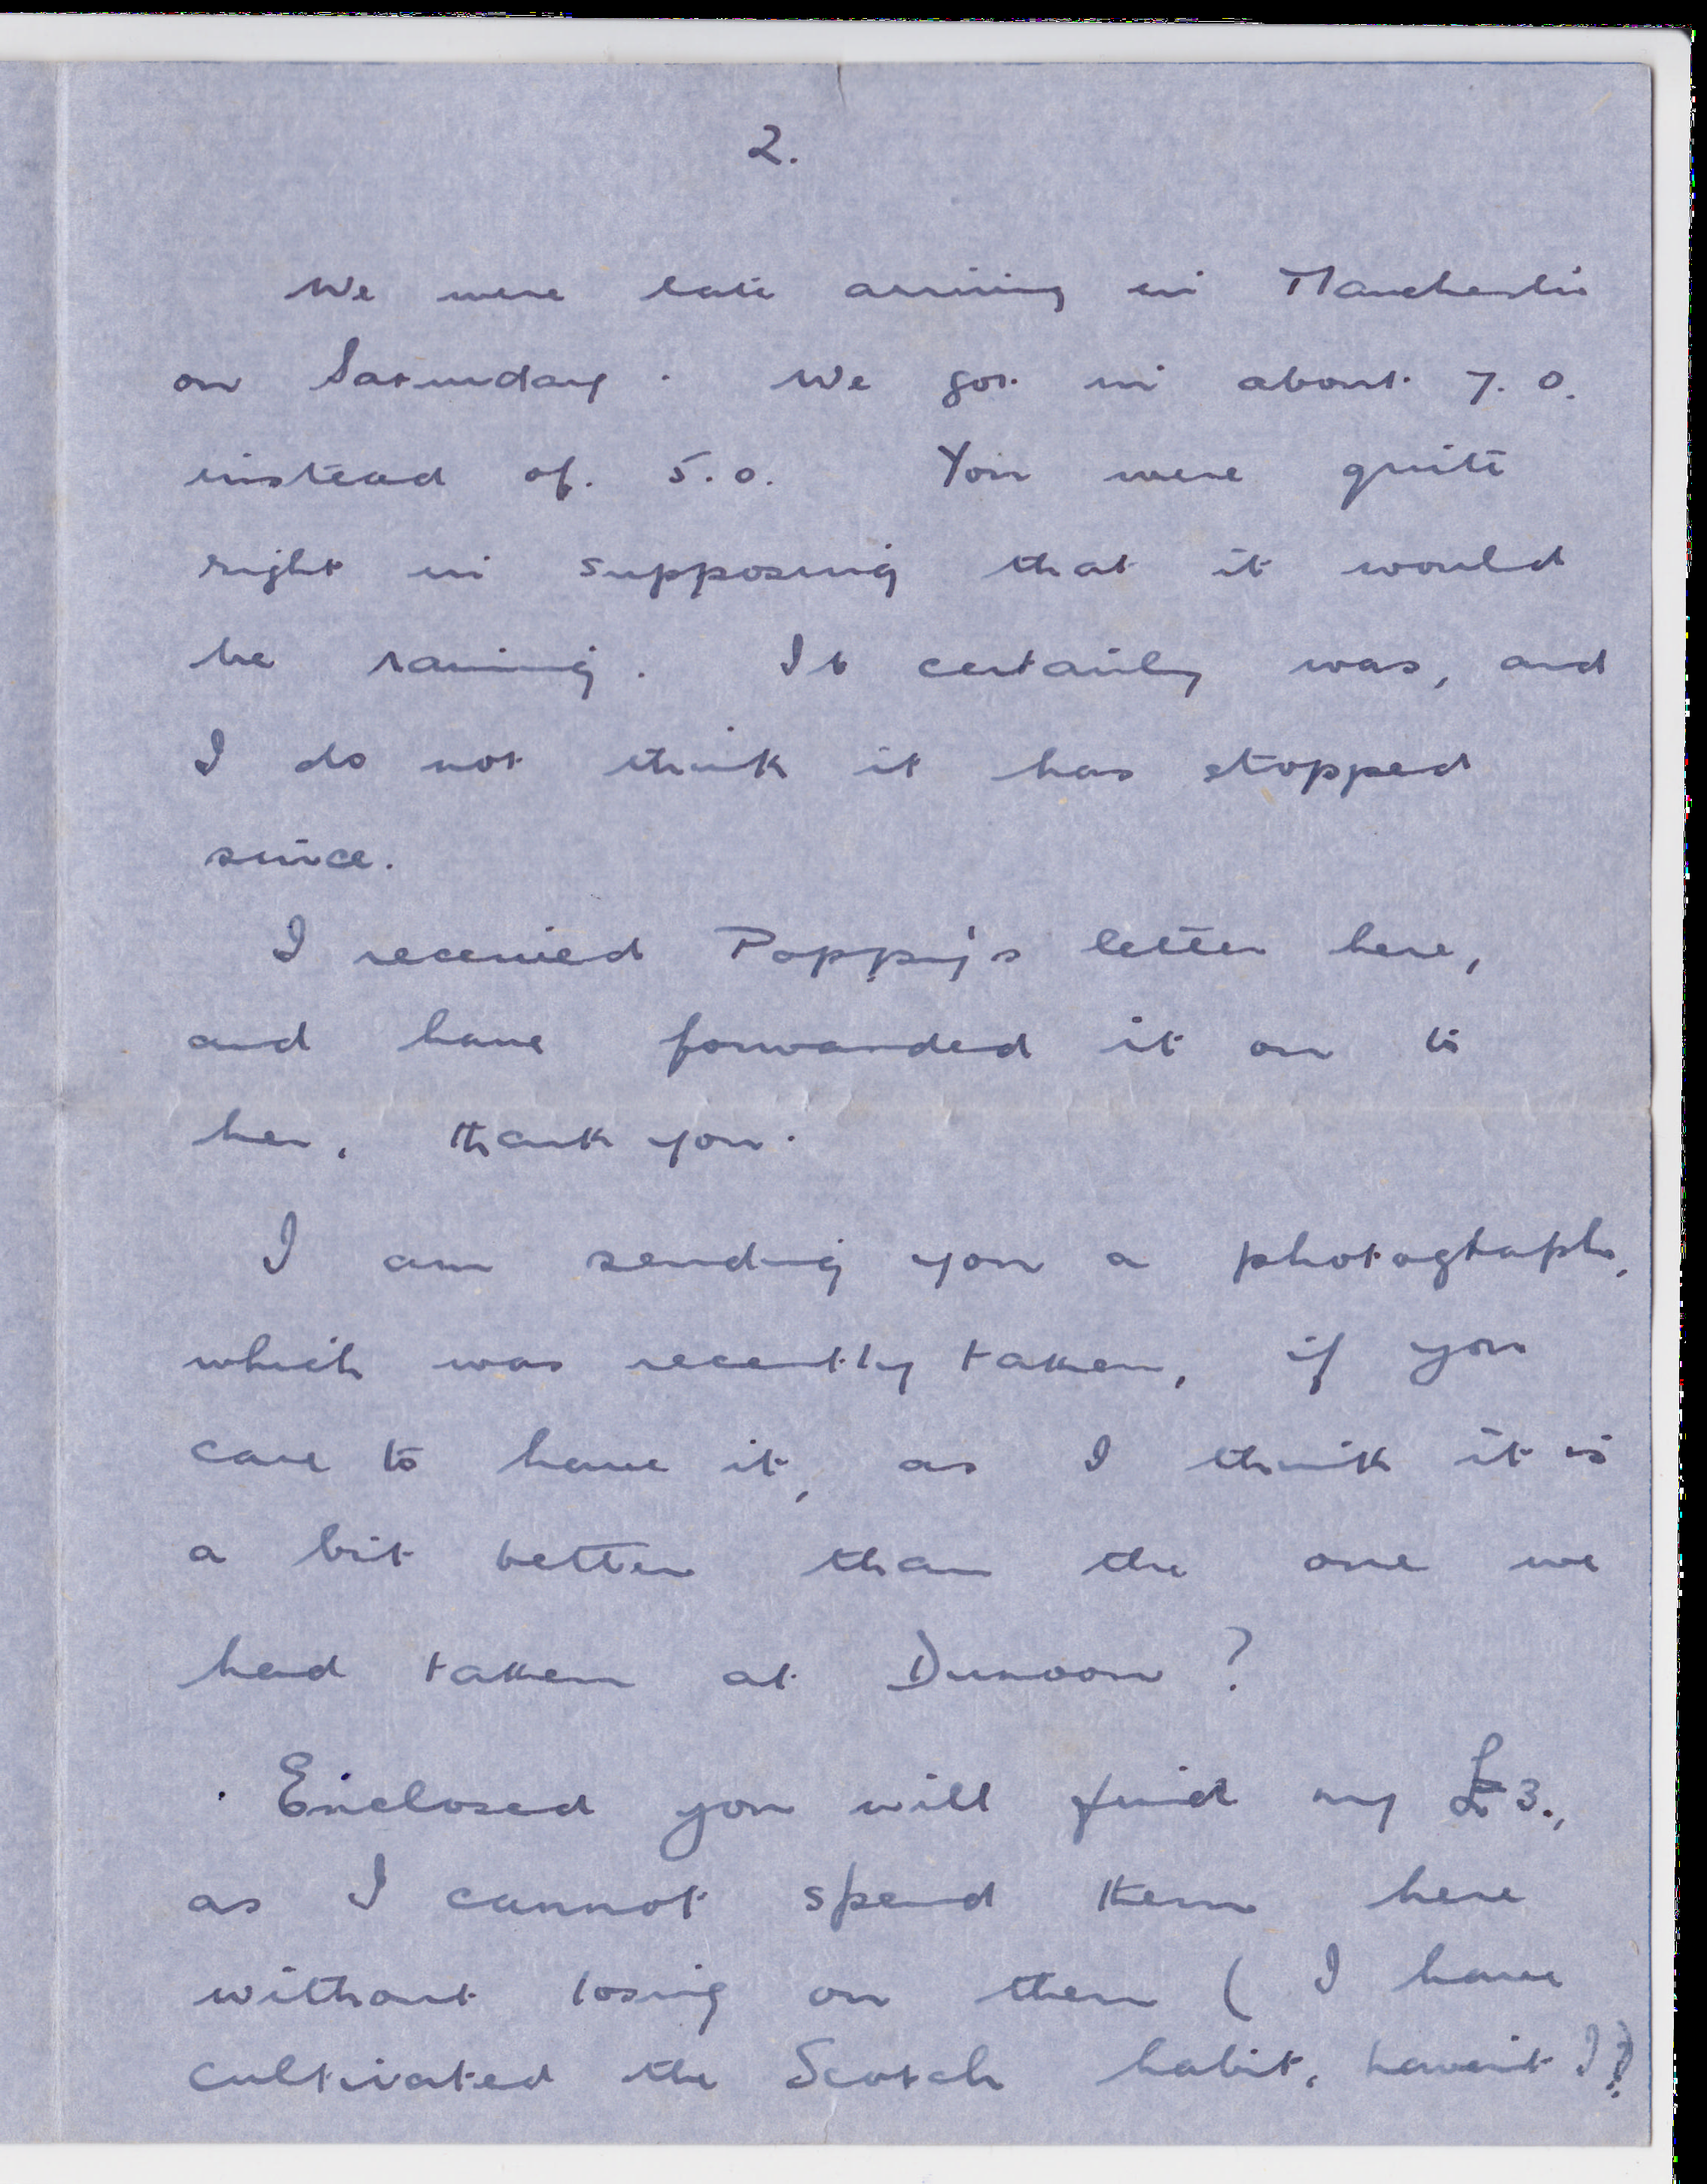 2.
We were late arriving in Manchester
on Saturday. We got in about 7.0.
instead of. 5.0. You were quite
right in supposing that it would
be raining. It certainly was, and
I do not think it has stopped
since.
I received Poppy's letter here,
and have forwarded it on to
her, thank you.
I am sending you a photograph,
which was recently taken, if you
care to have it, as I think it is
a bit better than the one we
had taken at Dunoon?
Enclosed you will find my £3.,
as I cannot spend them here
without losing on them (I have
cultivated the Scotch habit, haven't I?)